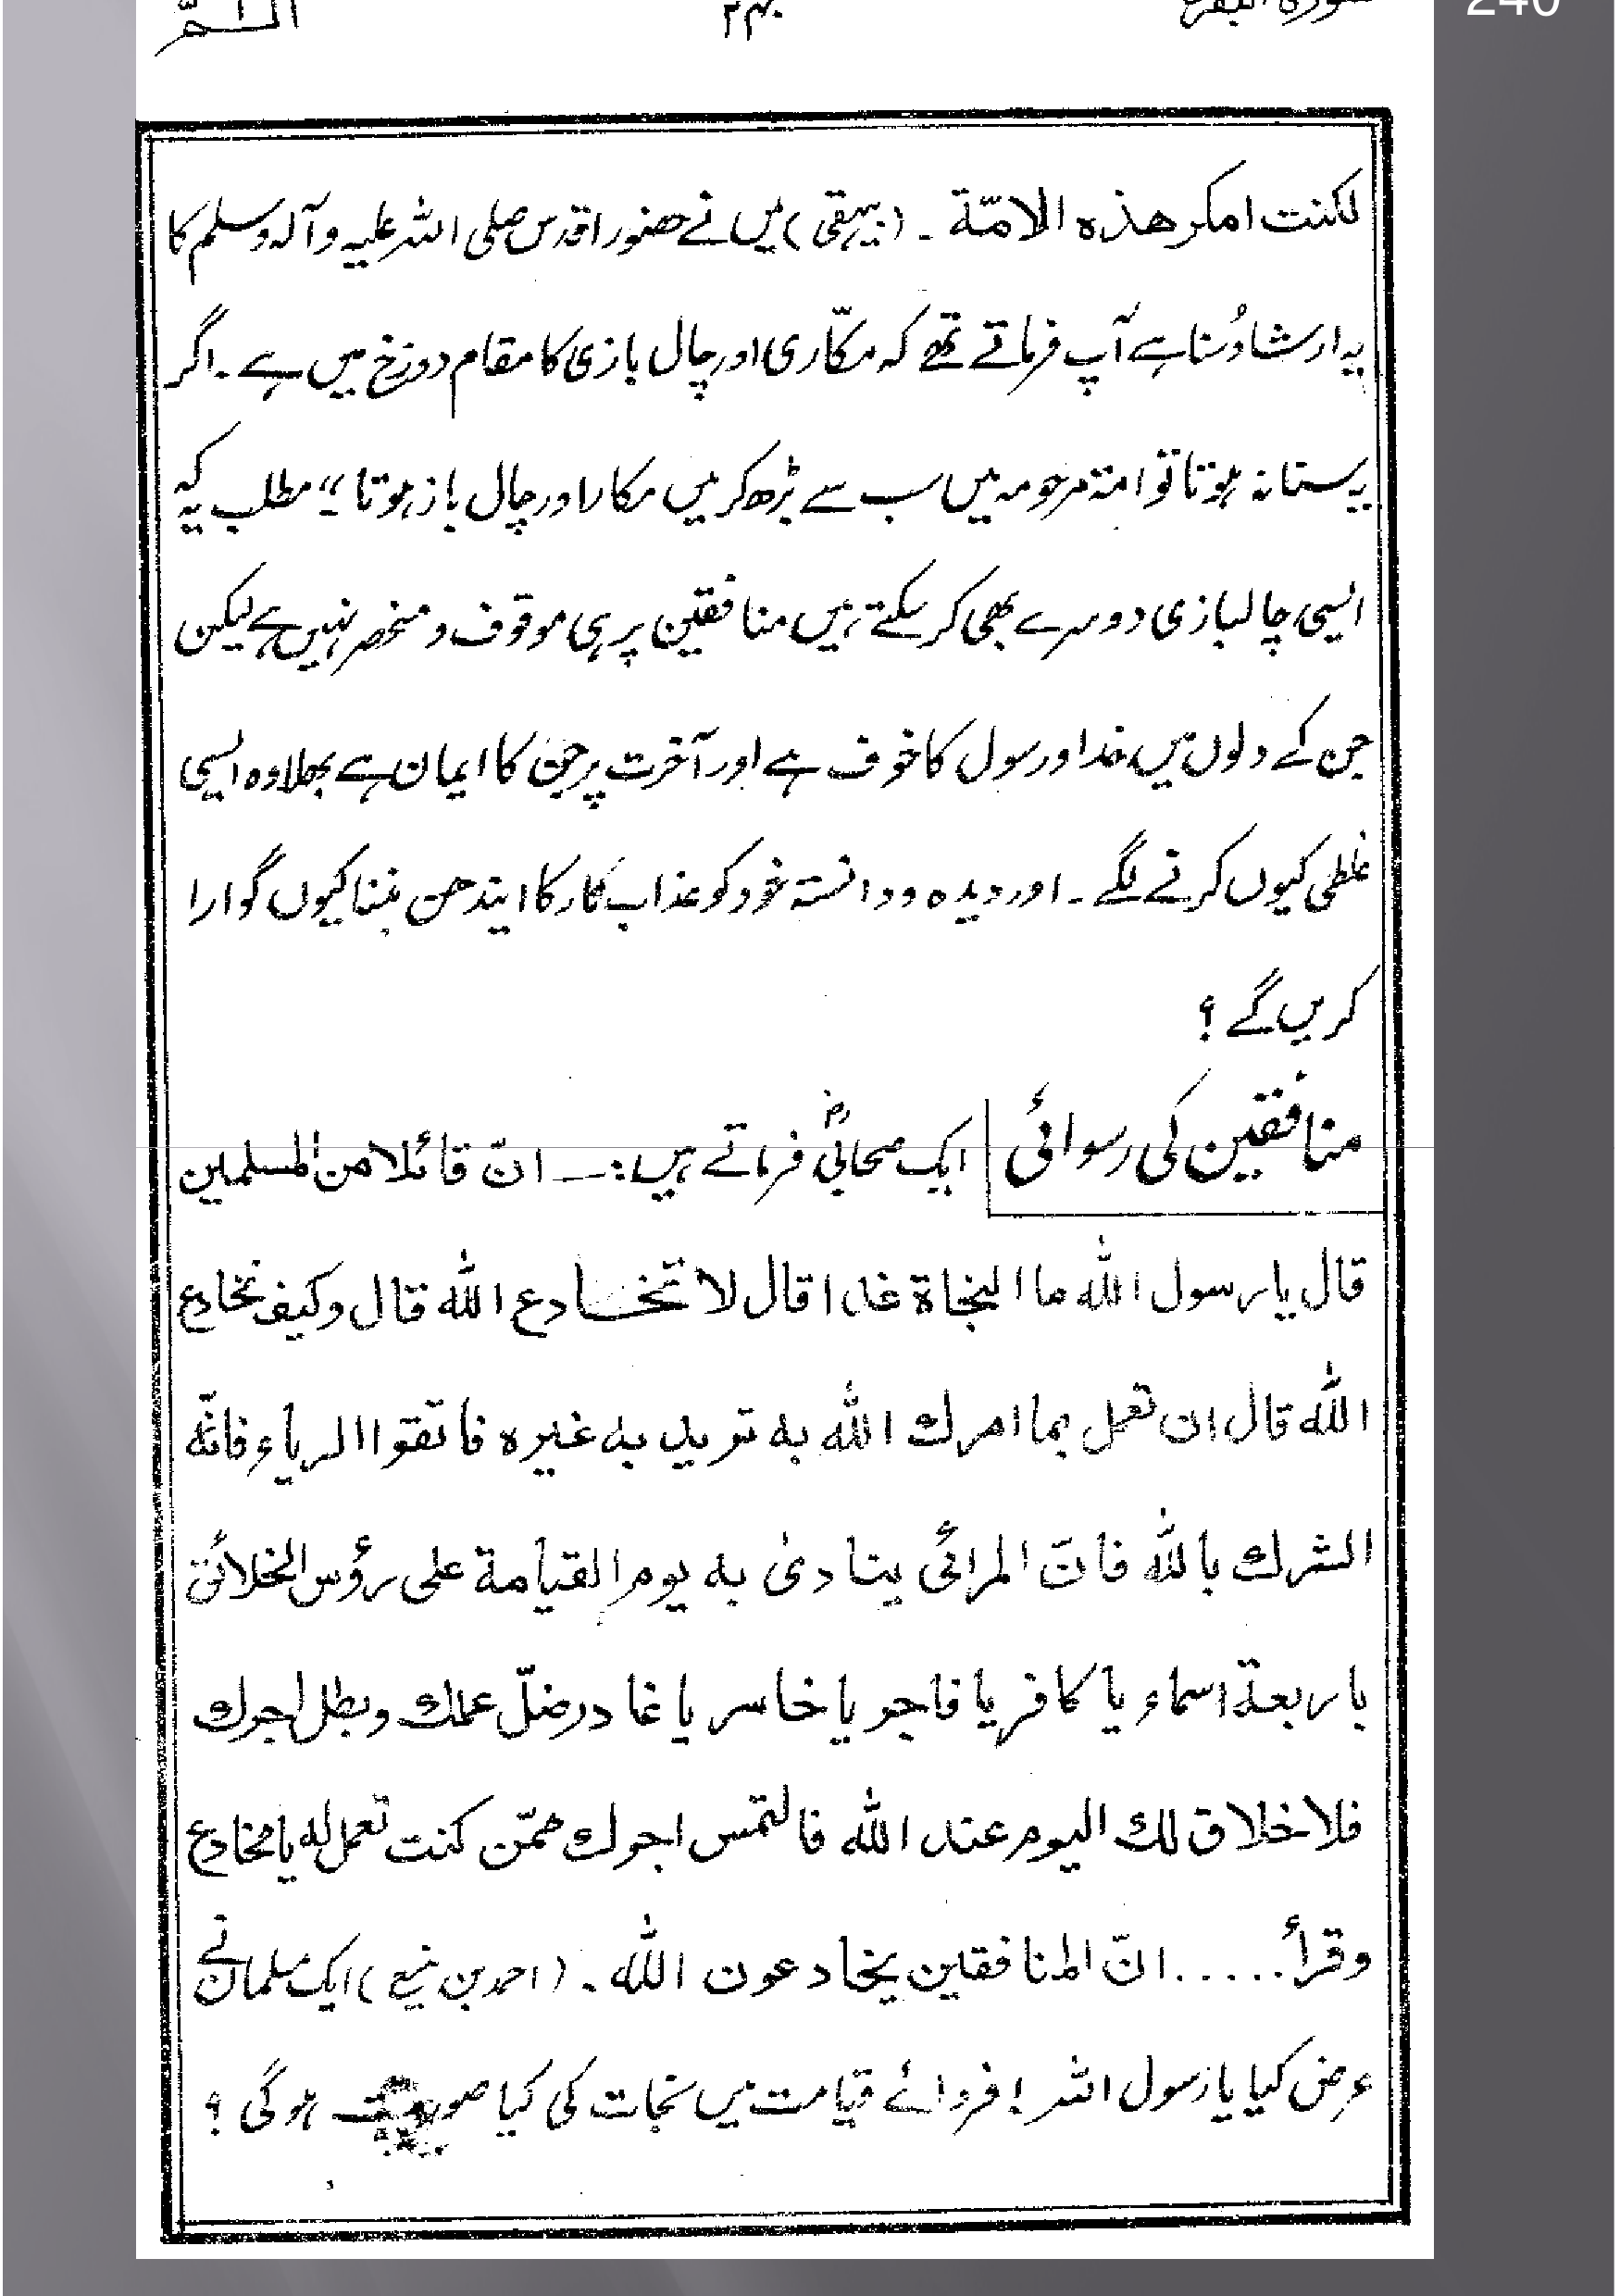 240
سورة البقرة
الـمّ
لکنت امکر هذه الامّة ۔ (بیہقی) میں نے حضور اقدس صلی اللہ علیہ وآلہ وسلم کا
یہ ارشاد سُنا ہے آپ فرماتے تھے کہ مکّاری اور چال بازی کا مقام دوزخ میں ہے ۔ اگر
یہ سنا نہ ہوتا تو امتہ مرحومہ میں سب سے بڑھ کر میں مکار اور چال باز ہوتا" مطلب یہ کہ
ایسی چالبازی دوسرے بھی کر سکتے ہیں منافقین پر ہی موقوف و منحصر نہیں ہے لیکن
جن کے دلوں میں خدا و رسول کا خوف ہے اور آخرت پر جن کا ایمان ہے بھلا وہ ایسی
غلطی کیوں کرنے لگے ۔ اور دیدہ و دانستہ خود کو عذاب نار کا ایندھن بننا کیوں گوارا
کریں گے ؟
منافقین کی رسوائی ایک صحابیؓ فرماتے ہیں:۔ انّ قائلا من المسلمین
قال یا رسول اللّٰه ما النجاة غدا قال لا تخادع اللّٰه قال وکیف نخادع
اللّٰه قال ان تعمل بما امرك اللّٰه به ترید به غیره فاتقوا الریاء فانّه
الشرك باللّٰه فانّ المرائی ینادیٰ به یوم القیامة علی رؤس الخلائق
باربعة اسماء یا کافر یا فاجر یا خاسر یا غادر ضلّ عملك وبطل اجرك
فلا خلاق لك الیوم عند اللّٰه فالتمس اجرك ممّن کنت تعمل له یا مخادع
وقرأ..... انّ المنافقین یخادعون اللّٰه ۔ (احمد بن منیع) ایک مسلمان نے
عرض کیا یا رسول اللہ! فردائے قیامت میں نجات کی کیا صورت ہوگی ؟